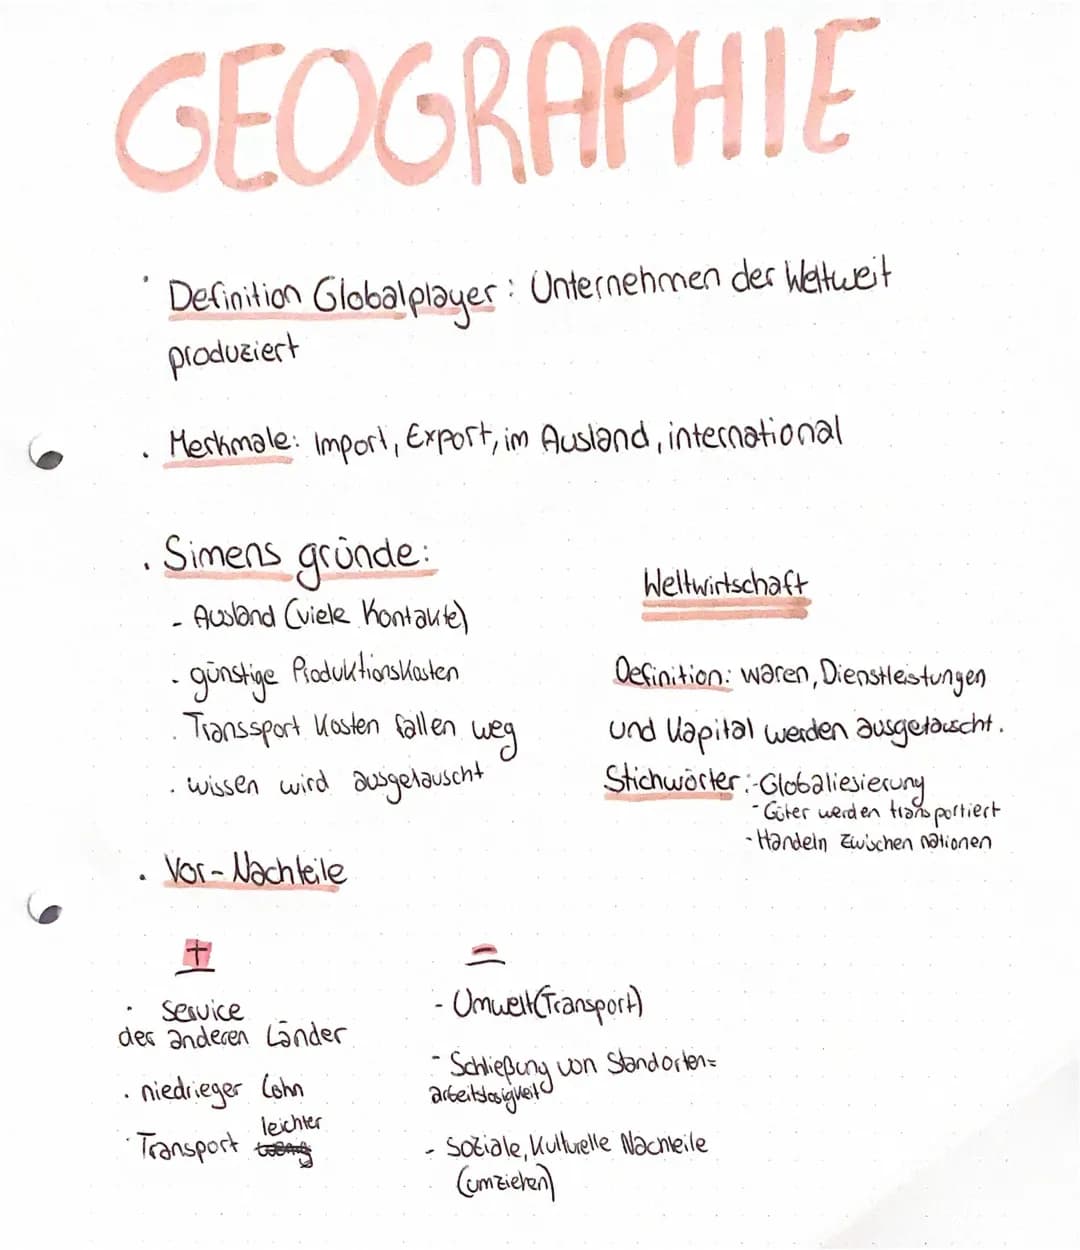 GEOGRAPHIE
· Definition Globalplayer: Unternehmen der Weltweit
produziert
· Merkmale: Import, Export, im Ausland, international
· Simens gründe:
- Ausland (viele Kontakte)
- günstige Produktionskosten
· Transsport Kosten fallen weg
· wissen wird ausgetauscht
Weltwirtschaft
Definition: waren, Dienstleistungen
und Kapital werden ausgetauscht.
Stichwörter: - Globaliesierung
- Güter werden transportiert
- Handeln zwischen nationen
· Vor-Nachteile
+
· service
der anderen Länder
· niedrieger Lohn
leichter
· Transport
-
- Umwelt (Transport)
- Schließung von Standorten=
arbeitslosigkeit
- Soziale, Kulturelle Nachteile
(umziehen)